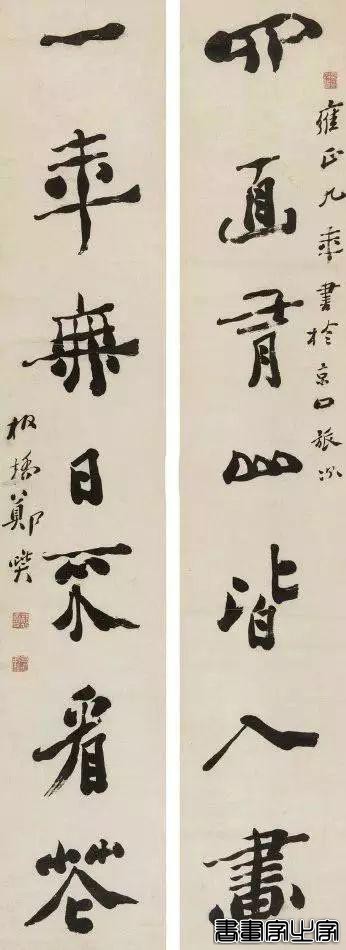 雍正九年書於京口旅次
四面有山皆入畫
一年無日不看花
板橋鄭燮
書畫家之家